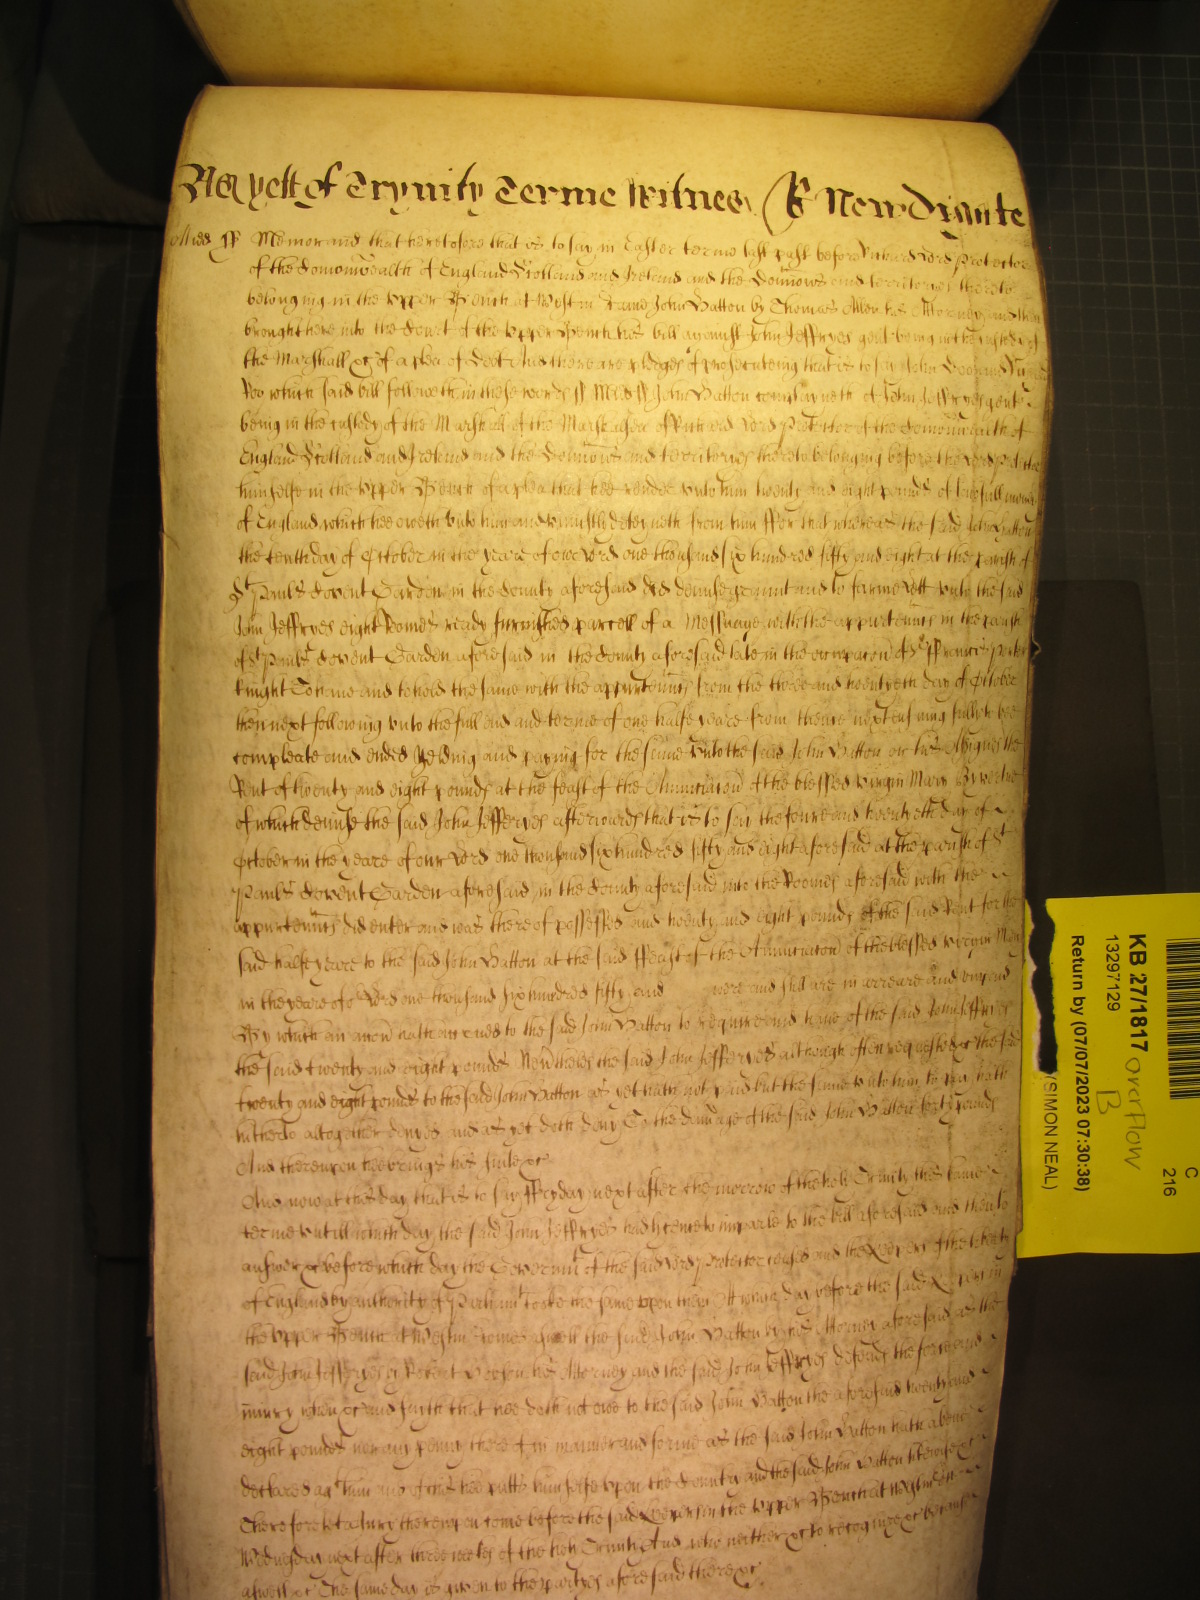 As yett of Trynity Terme Witnes R Newdigate
Midds ss Memorand that heretofore that is to say in Easter terme last past before Richard Lord Protector
of the Comonwealth of England Scotland and Ireland and the Dominions and territoryes thereto
belonging in the Upper Bench at Westm came John Batton by Thomas Allen his Attorney and then
brought here into the Court of the Upper Bench his bill against John Jeffryes gent being in the custody of
the Marshall &c of a plea of Debt And there are pledges of prosecuteing that is to say John Doe and Richard
Roo which said bill followeth in these words ss Midd ss John Batton complayneth of John Jeffryes gent
being in the custody of the Marshall of the Marshalsea of Richard Lord Protector of the Comonwealth of
England Scotland and Ireland and the Dominions and territoryes thereto belonging before the Lord Protector
himselfe in the Upper Bench of a plea that hee render unto him twenty and eight pounds of lawfull money
of England which hee oweth unto him and uniustly deteyneth from him ffor that whereas the said John Batton
the tenth day of October in the yeare of our Lord one thousand six hundred fifty and eight at the parish of
St Pauls Covent Garden in the County aforesaid did demise graunt and to farme lett unto the said
John Jeffryes eight Roomes ready furnished parcell of a Messuage with the appurtennts in the parish
of St Pauls Covent Garden aforesaid in the County aforesaid late in the occupacon of Sr ffrancis Parker
knight To have and to hold the same with the appurtennts from the three and twentyeth day of October
then next following unto the full end and terme of one halfe yeare from thence next ensuing fully to bee
compleate and ended Yelding and paying for the same unto the said John Batton or his Assignes the
Rent of twenty and eight pounds at the feast of the Annunciacon of the blessed virgin Mary By vertue
of which demise the said John Jeffryes afterwards that is to say the foure and twentyeth day of
October in the yeare of our Lord one thousand six hundred fifty and eight aforesaid at the parish of St
Pauls Covent Garden aforesaid in the County aforesaid into the Roomes aforesaid with the
appurtennts did enter and was thereof possessed and twenty and eight pounds of the said Rent for the
said halfe yeare to the said John Batton at the said ffeast of the Annunciacon of the blessed virgin Mary
in the yeare of or Lord one thousand six hundred fifty and were and still are in arreare and unpaid
By which an accon hath accrued to the said John Batton to require and have of the said John Jeffryes
the said twenty and eight pounds Neverthelesse the said John Jefferyes although often requested &c the said
twenty and eight pounds to the said John Batton as yet hath not paid but the same unto him to pay hath
hitherto altogether denyed and as yet doth deny To the damage of the said John Batton forty pounds
And thereupon hee brings his suite &c
And now at this day that is to say ffryday next after the morrow of the holy Trinity this same
terme untill which day the said John Jeffryes had licence to imparle to the bill aforesaid and then to
answer &c before which day the Governmt of the said Lord Protector ceased and the Keepers of the liberty
of England by authority of Parliamt tooke the same upon them Att which day before the said Keepers in
the Upper Bench at Westm comes aswell the said John Batton by his Attorney aforesaid as the
said John Jeffryes by Robert his Attorney and the said John Jeffryes defends the force and
iniury when &c and saith that hee doth not owe to the said John Batton the aforesaid twenty and
eight pounds nor any penny thereof in manner and forme as the said John Batton hath above
declared agt him and of this hee putts himselfe upon the Country and the said John Batton likewise &c
Therefore let a Jury thereupon come before the said Keepers in the Upper Bench at Westm on
Wednesday next after three weekes of the holy Trinity And who neither &c to recognize &c because
aswell &c The same day is given to the partyes aforesaid there &c
KB 27/1817
13297129
Return by (07/07/2023 07:30:38)
(SIMON NEAL)
overflow
B
C
216